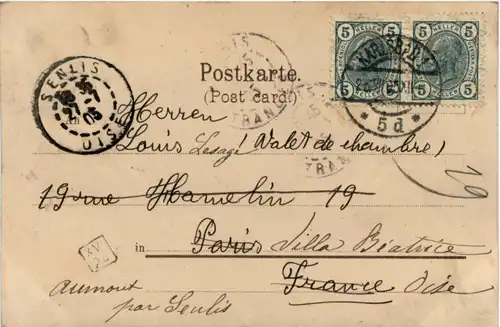 5 HELLER 5 5 HELLER 5
5 5 5 5
SENLIS
OISE
Postkarte.
(Post card.)
* 5 d *
Herren
Louis Lesage (Valet de chambre)
19 rue Hamelin 19
in Paris Villa Béatrice
France Oise
XV
2E
aumont
par Senlis
19